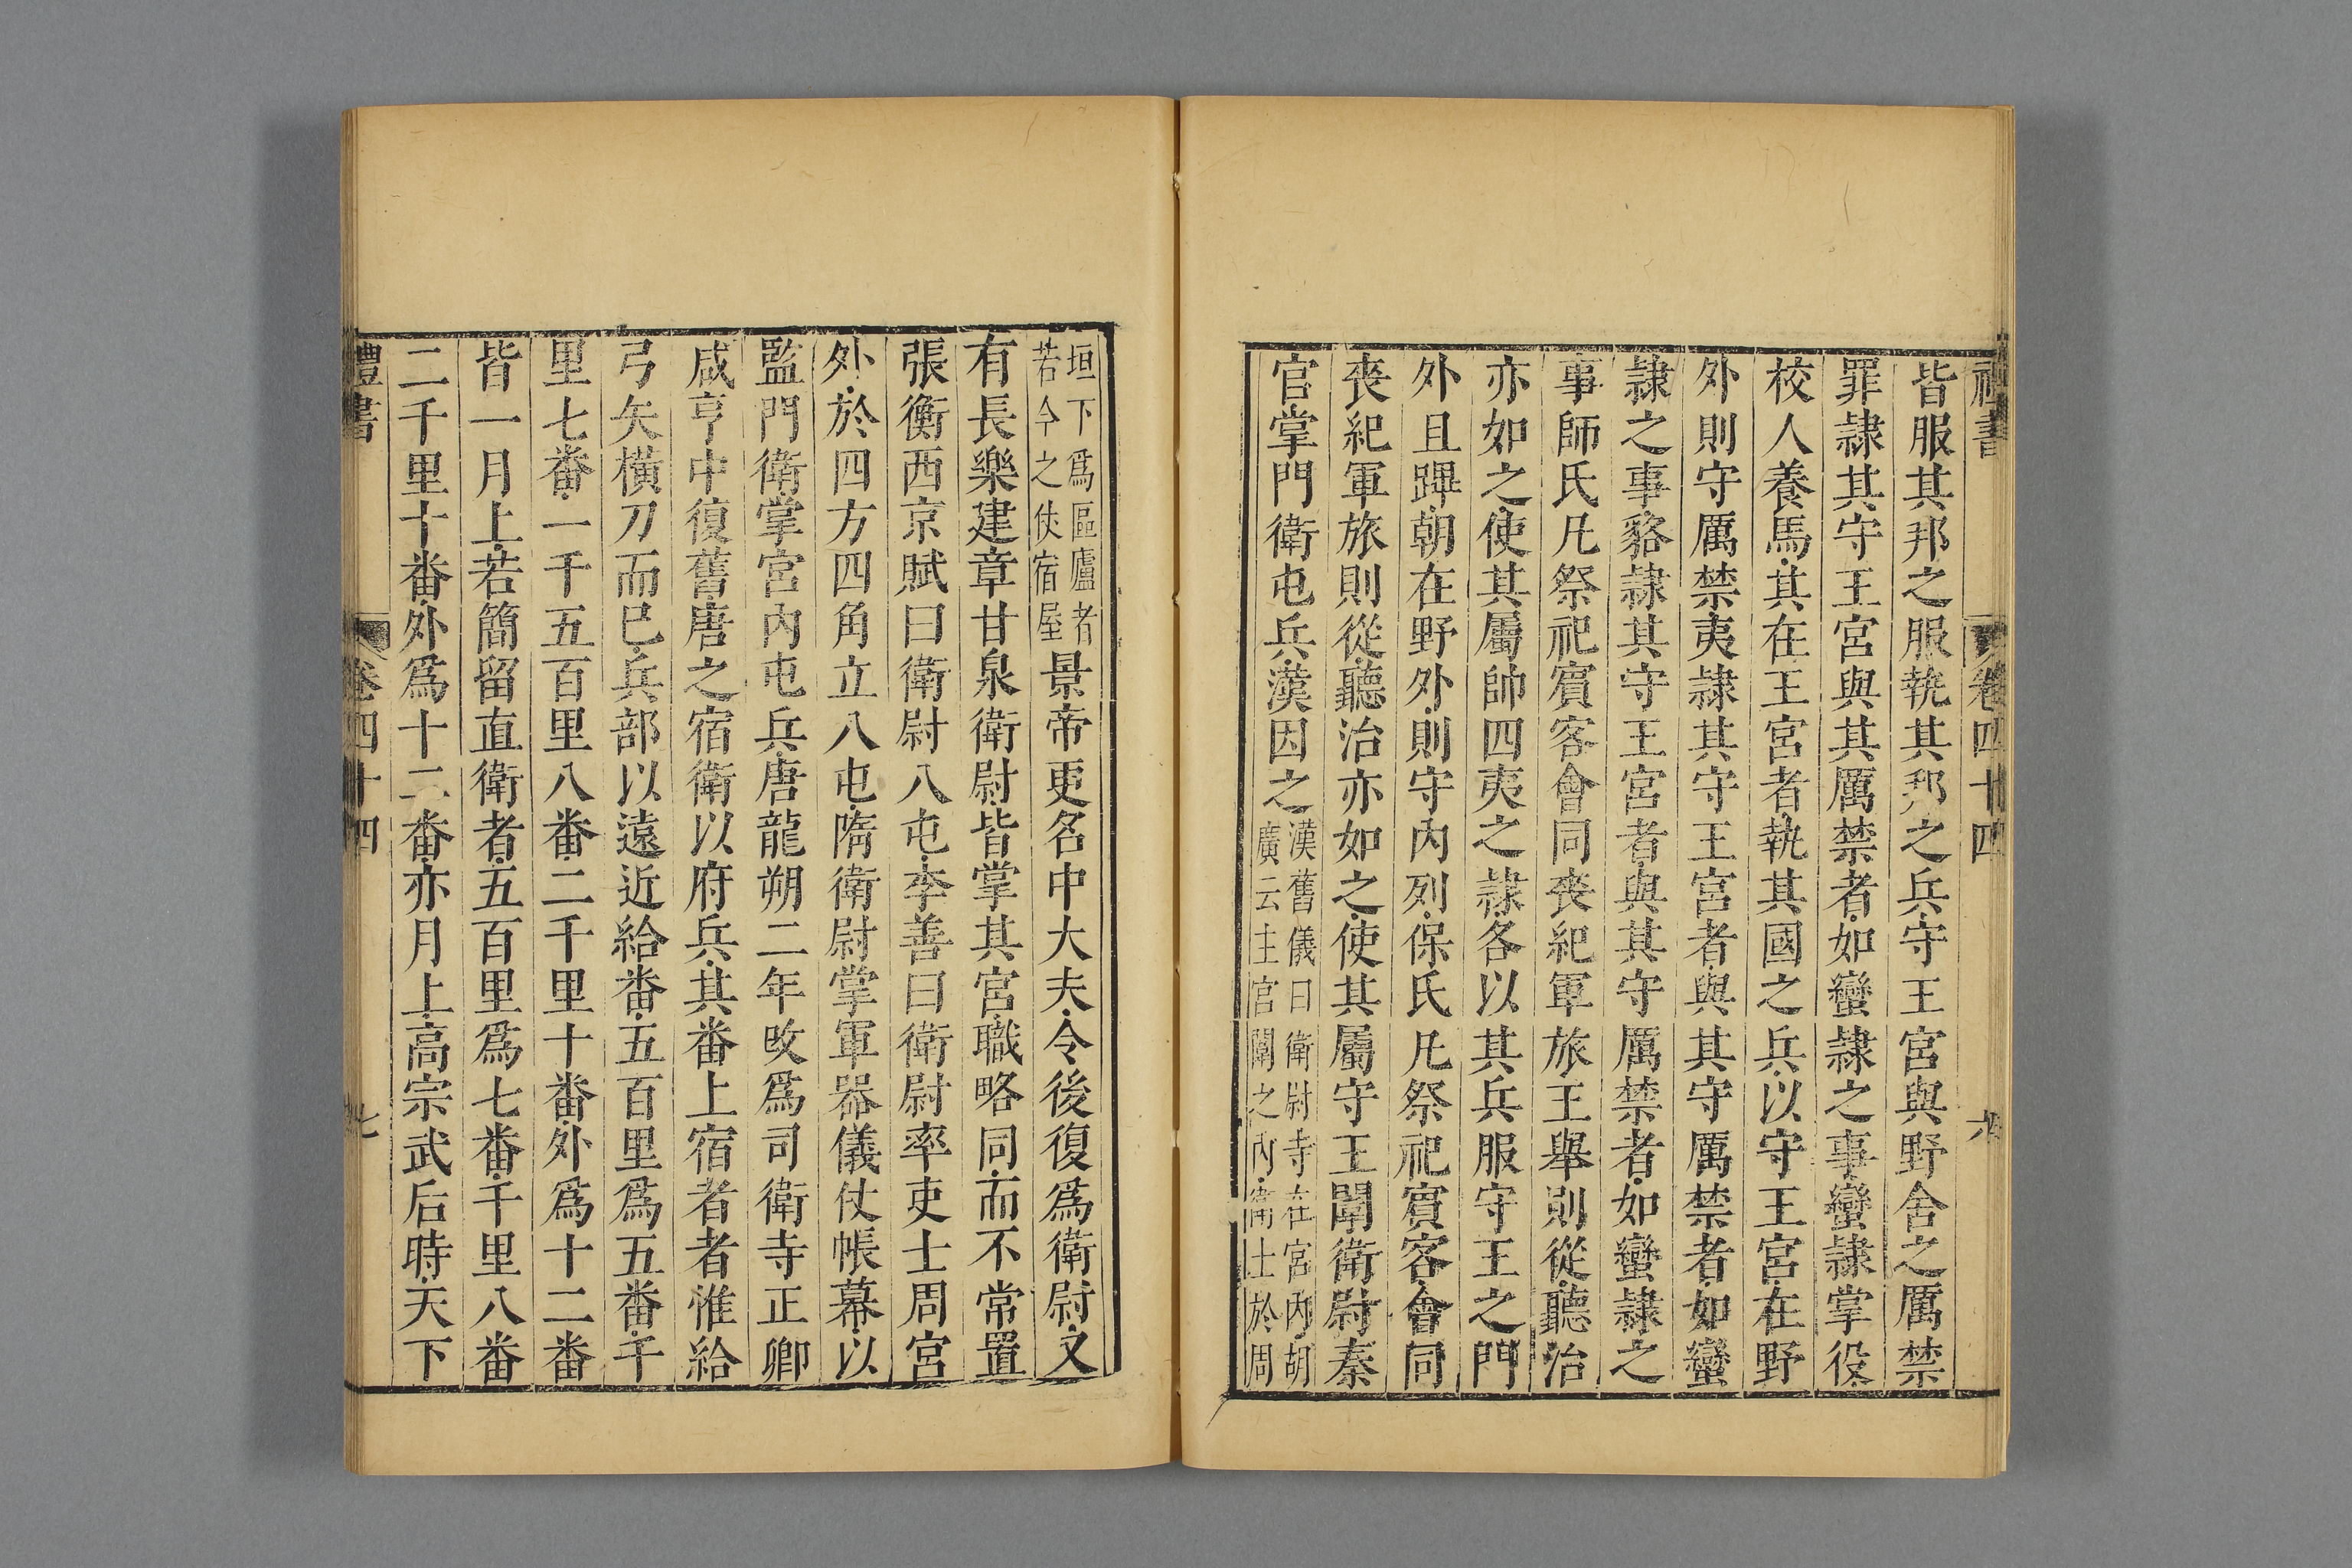 禮書 卷四十四 六
皆服其邦之服執其邦之兵守王宮與野舍之厲禁
罪隸其守王宮與其厲禁者如蠻隸之事蠻隸掌役
校人養馬其在王宮者執其國之兵以守王宮在野
外則守厲禁夷隸其守王宮者與其守厲禁者如蠻
隸之事貉隸其守王宮者與其守厲禁者如蠻隸之
事師氏凡祭祀賓客會同喪紀軍旅王舉則從聽治
亦如之使其屬帥四夷之隸各以其兵服守王之門
外且蹕朝在野外則守內列保氏凡祭祀賓客會同
喪紀軍旅則從聽治亦如之使其屬守王闈衛尉秦
官掌門衛屯兵漢因之漢舊儀曰衛尉寺在宮內胡
廣云主宮闕之內衛士於周
垣下爲區廬者
若今之仗宿屋景帝更名中大夫令後復爲衛尉又
有長樂建章甘泉衛尉皆掌其宮職略同而不常置
張衡西京賦曰衛尉八屯李善曰衛尉率吏士周宮
外於四方四角立八屯隋衛尉掌軍器儀仗帳幕以
監門衛掌宮內屯兵唐龍朔二年改爲司衛寺正卿
咸亨中復舊唐之宿衛以府兵其番上宿者者惟給
弓矢橫刀而已兵部以遠近給番五百里爲五番千
里七番一千五百里八番二千里十番外爲十二番
皆一月上若簡留直衛者五百里爲七番千里八番
二千里十番外爲十二番亦月上高宗武后時天下
禮書 卷四十四 七